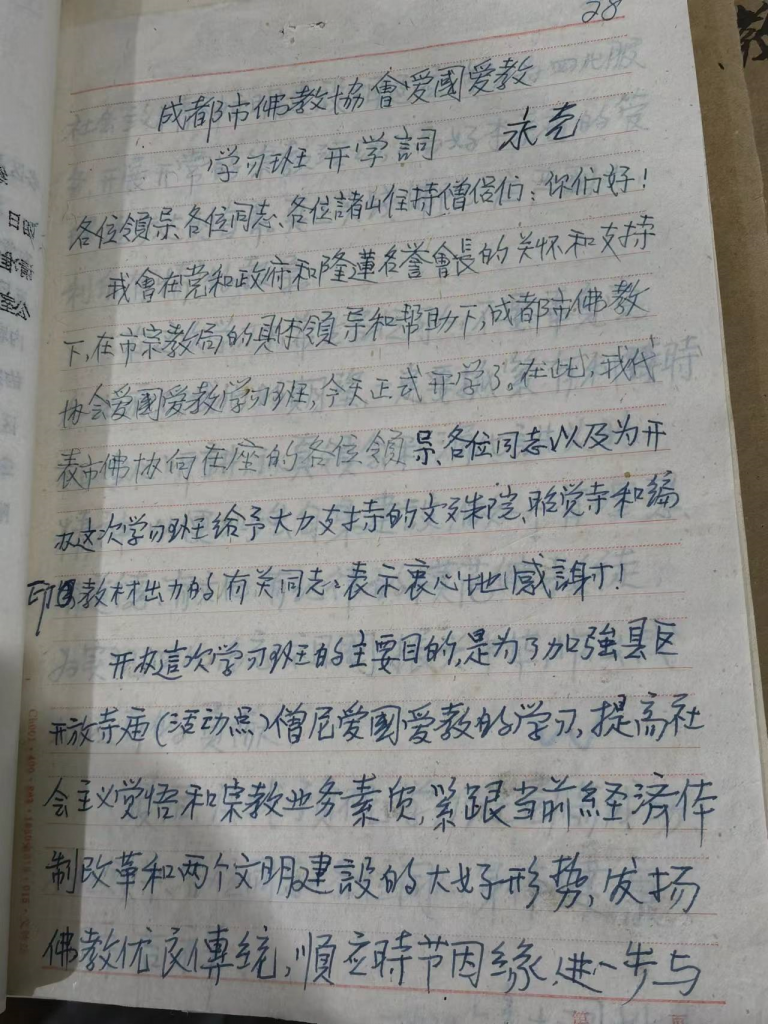 28
成都市佛教協會爱國爱教
学习班 开学詞 永克
各位領导、各位同志、各位諸山住持僧侣们：你们好！
我會在党和政府和隆蓮名誉會長的关怀和支持
下，在市宗教局的具体領导和帮助下，成都市佛教
协会爱國爱教学习班，今天正式开学了。在此，我代
表市佛协向在座的各位領导、各位同志以及为开
办这次学习班给予大力支持的文殊院、昭觉寺和编
印教材出力的有关同志：表示衷心地感謝！
开办這次学习班的主要目的，是为了加強县区
开放寺庙（活动点）僧尼爱國爱教的学习，提高社
会主义觉悟和宗教业务素质，紧跟当前経济体
制改革和两个文明建設的大好形势，发扬
佛教优良傳统，順应時节因緣，进一步与